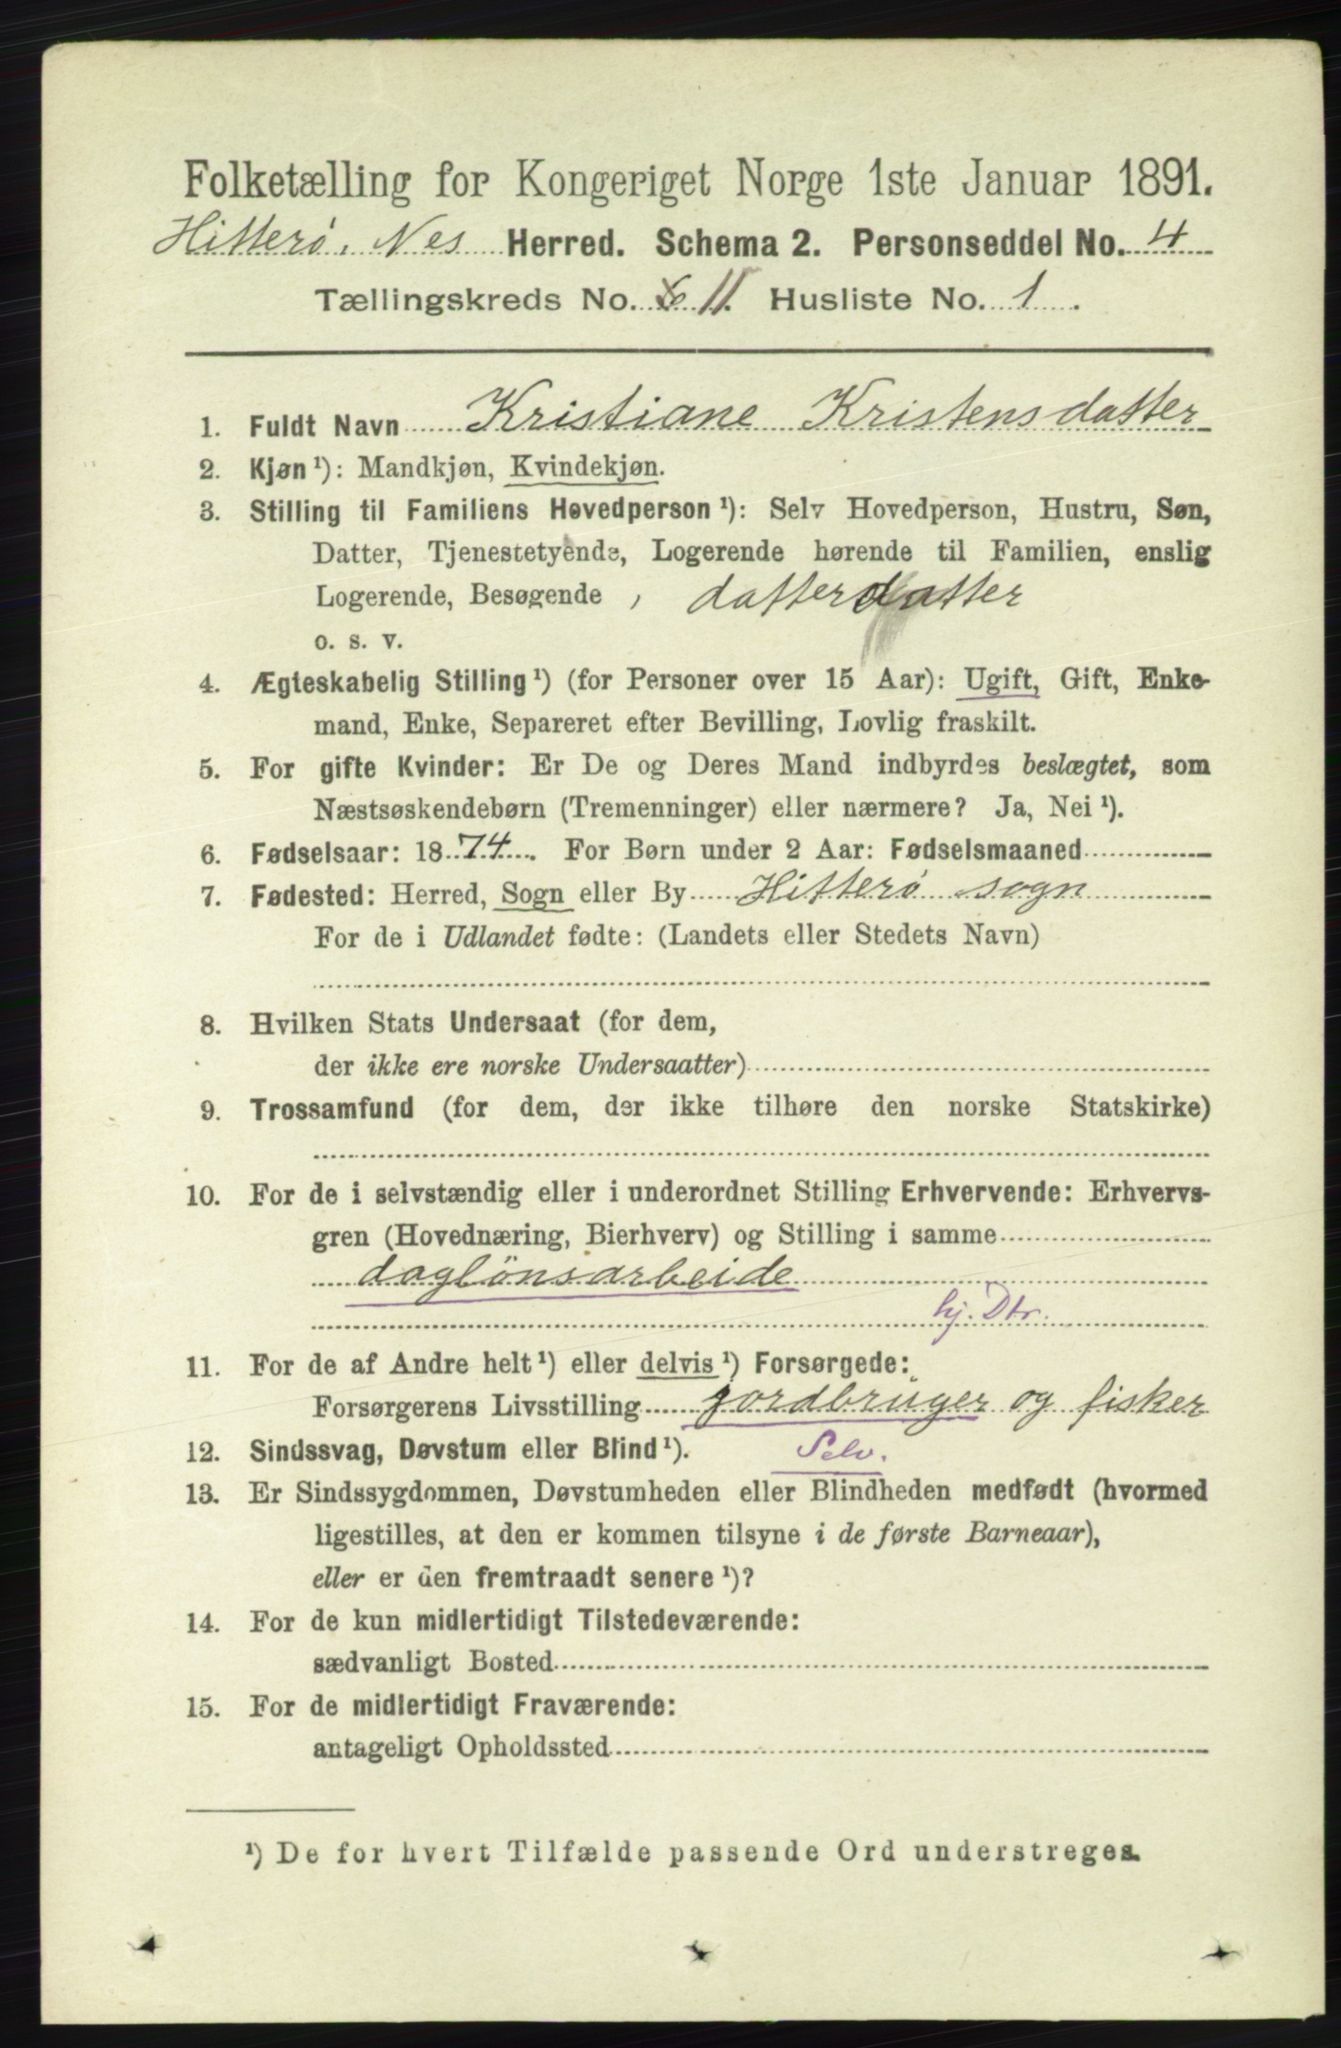 Folketælling for Kongeriget Norge 1ste Januar 1891.
Hitterö, Nes Herred. Schema 2. Personseddel No. 4
Tællingskreds No. 11. Husliste No. 1.
1. Fuldt Navn Kristiane Kristensdatter
2. Kjøn ¹): Mandkjøn, Kvindekjøn.
3. Stilling til Familiens Hovedperson ¹): Selv Hovedperson, Hustru, Søn,
Datter, Tjenestetyende, Logerende hørende til Familien, enslig
Logerende, Besøgende , datterdatter
o. s. v.
4. Ægteskabelig Stilling ¹) (for Personer over 15 Aar): Ugift, Gift, Enke-
mand, Enke, Separeret efter Bevilling, Lovlig fraskilt.
5. For gifte Kvinder: Er De og Deres Mand indbyrdes beslægtet, som
Næstsøskendebørn (Tremenninger) eller nærmere? Ja, Nei ¹).
6. Fødselsaar: 1874. For Børn under 2 Aar: Fødselsmaaned
7. Fødested: Herred, Sogn eller By Hitterö sogn
For de i Udlandet fødte: (Landets eller Stedets Navn)
8. Hvilken Stats Undersaat (for dem,
der ikke ere norske Undersaatter)
9. Trossamfund (for dem, der ikke tilhøre den norske Statskirke)
10. For de i selvstændig eller i underordnet Stilling Erhvervende: Erhvervs-
gren (Hovednæring, Bierhverv) og Stilling i samme
daglönsarbeide
hj. Dtr.
11. For de af Andre helt ¹) eller delvis ¹) Forsørgede:
Forsørgerens Livsstilling jordbruger og fisker
12. Sindssvag, Døvstum eller Blind ¹). Selv.
13. Er Sindssygdommen, Døvstumheden eller Blindheden medfødt (hvormed
ligestilles, at den er kommen tilsyne i de første Barneaar),
eller er den fremtraadt senere ¹)?
14. For de kun midlertidigt Tilstedeværende:
sædvanligt Bosted
15. For de midlertidigt Fraværende:
antageligt Opholdssted
¹) De for hvert Tilfælde passende Ord understreges.